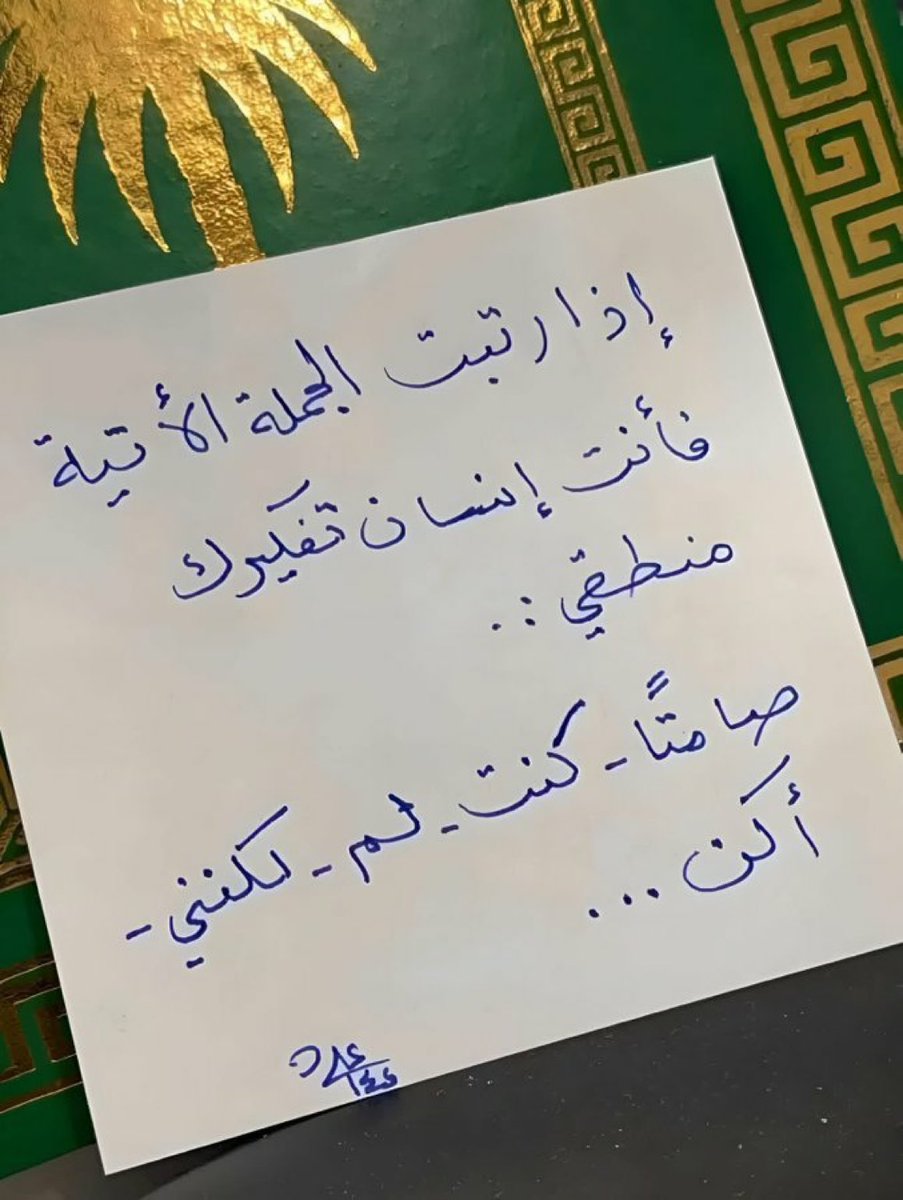 إذا رتبت الجملة الأتية
فأنت إنسان تفكيرك
منطقي :..
صامتًا - كنت - لم - لكنني -
أكن ...